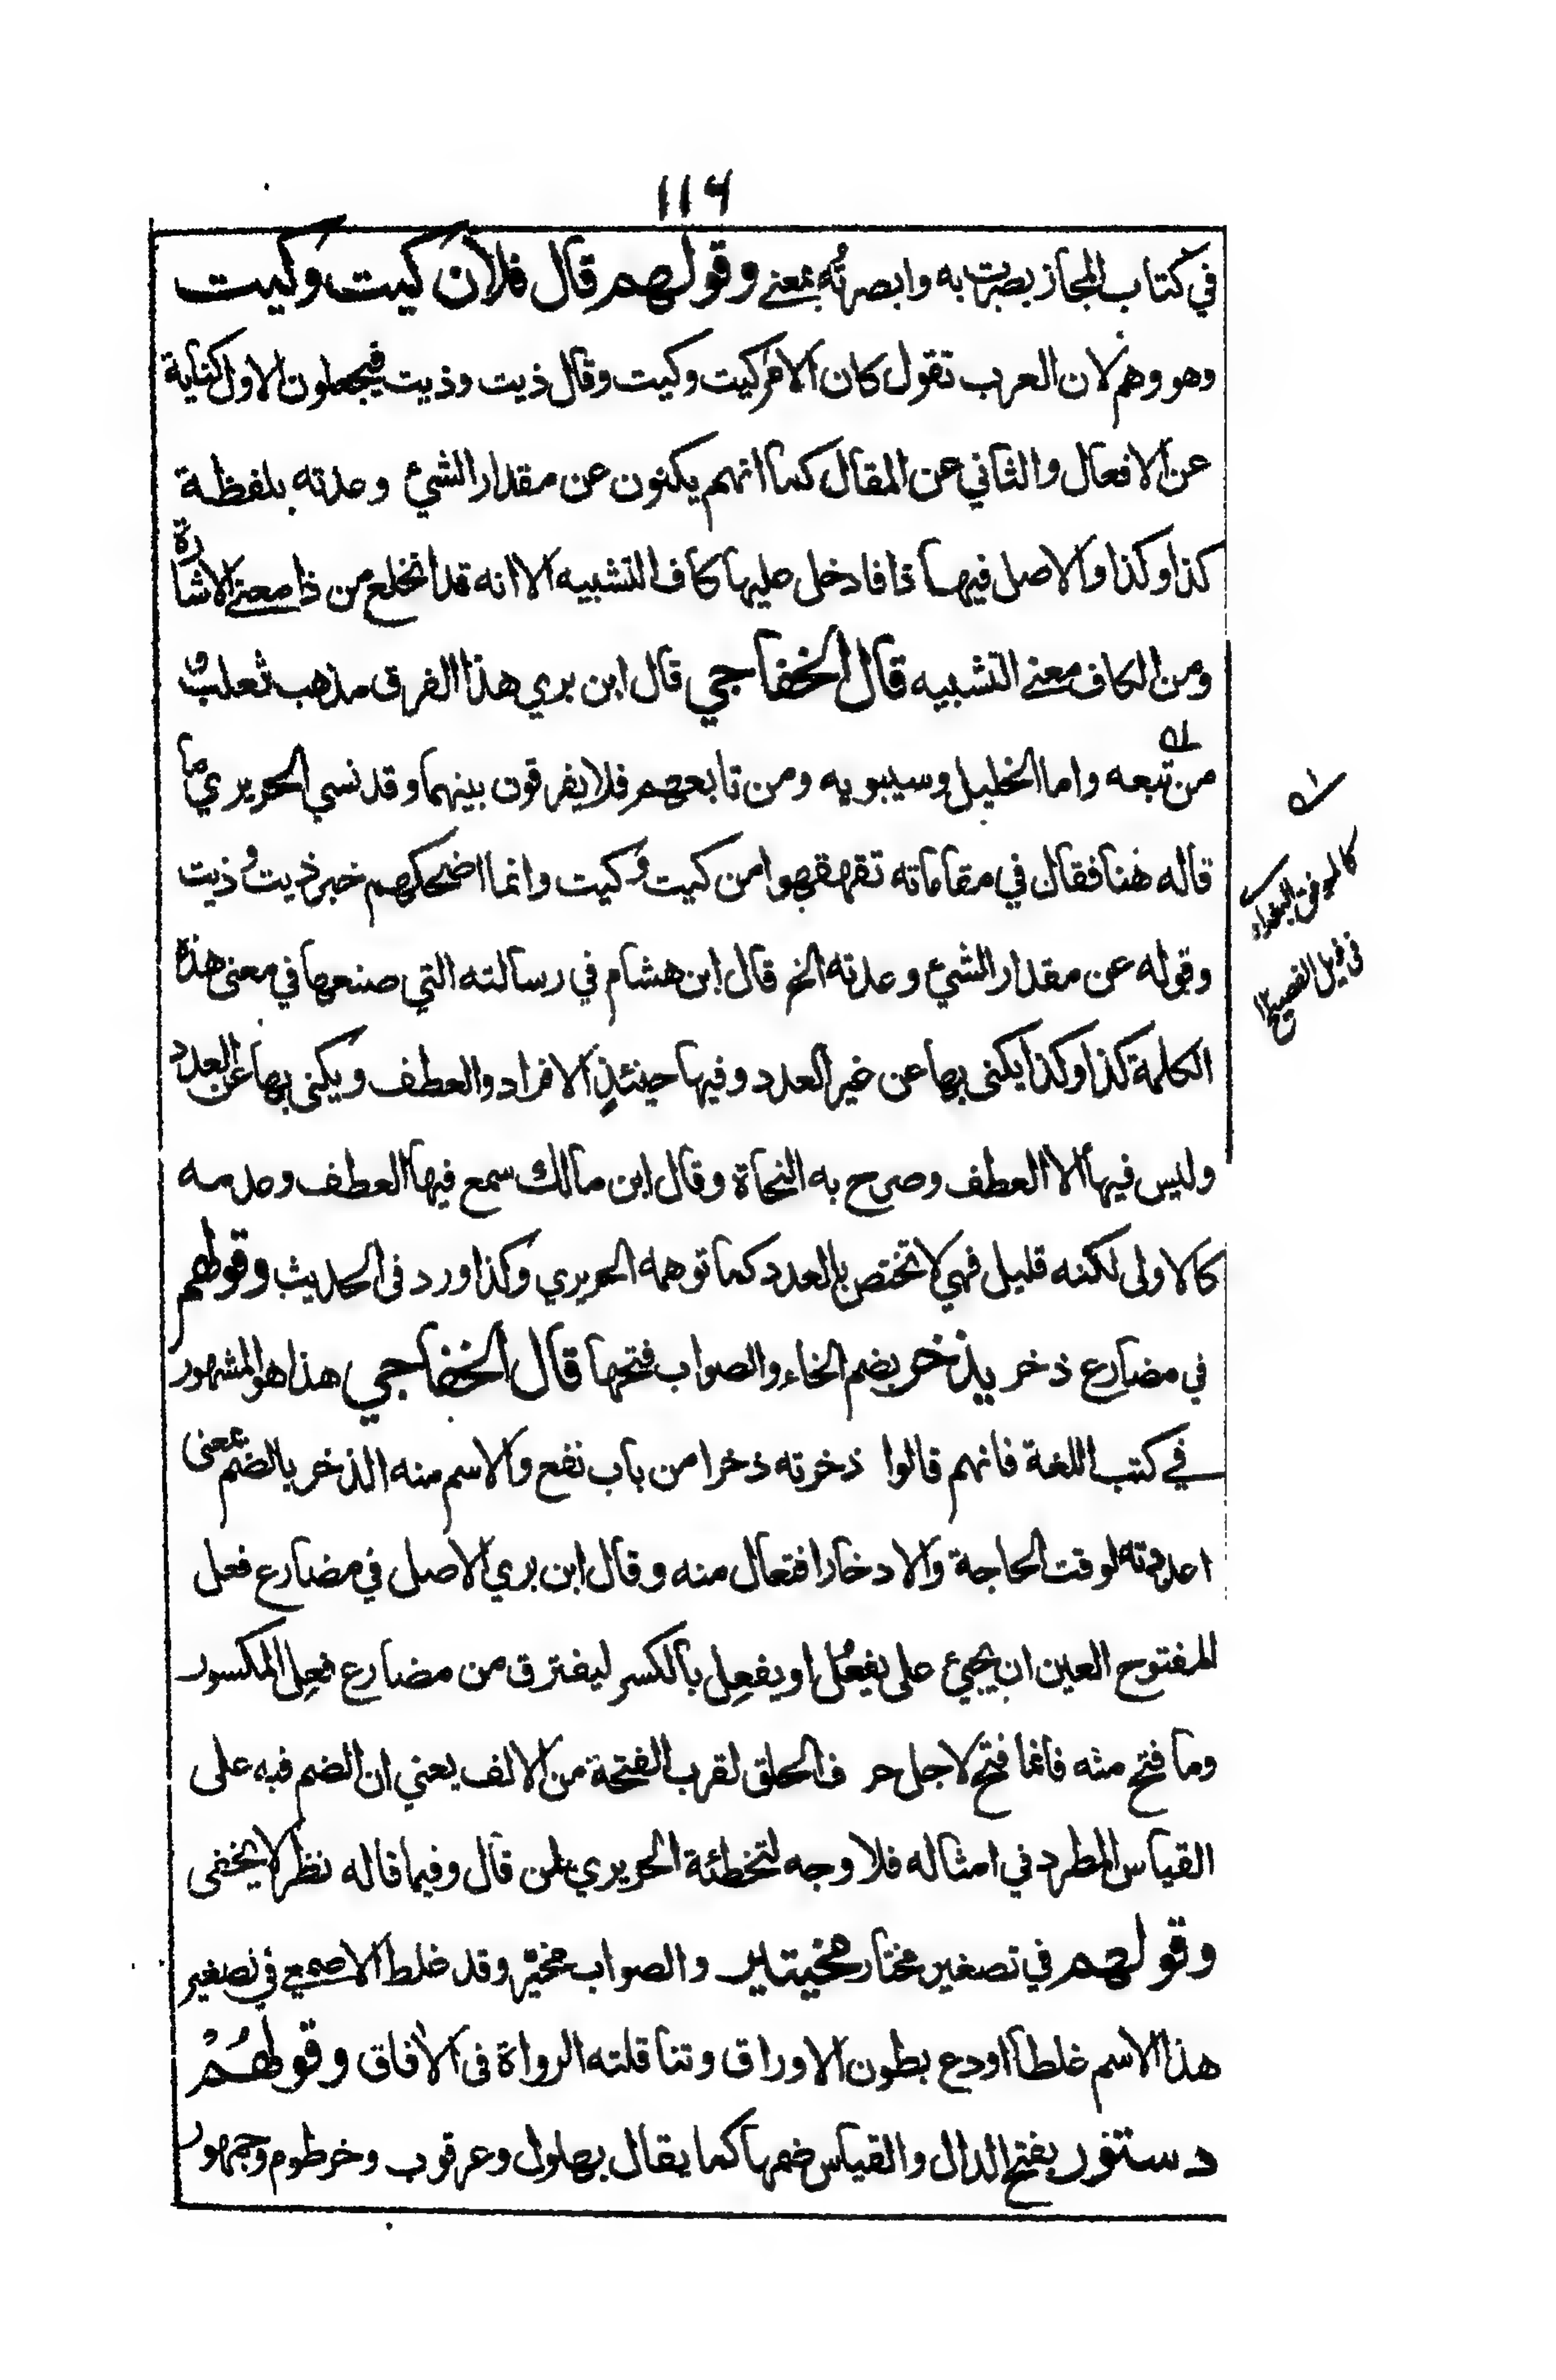 ١١٦
في كتاب المجاز بصرت به وابصرتُه بمعنے وقولهم قال فلان كيت وكيت
وهو وهم لان العرب تقول كان الامر كيت وكيت وقال ذيت وذيت فيجعلون الاول كناية
عن الافعال والثاني عن المقال كما انهم يكنون عن مقدار الشيء وعدته بلفظة
كذا وكذا والاصل فيها ذا فادخل عليها كاف التشبيه الا انه قد انخلع من ذا معنے الاشارة
ومن الكاف معنے التشبيه قال الخفاجي قال ابن بري هذا الفرق مذهب ثعلب و
من تبعه واما الخليل وسيبويه ومن تابعهم فلا يفرقون بينهما وقد نسي الحريري ما
قاله هنا فقال في مقاماته تقهقهوا من كيت وكيت وانما اضحكهم خبر ذيت وذيت
وقوله عن مقدار الشيء وعدته الخ قال ابن هشام في رسالته التي صنعها في معنى هذه
الكلمة كذا وكذا يكنى بها عن غير العدد وفيها حينئذٍ الافراد والعطف ويكنى بها عن العدد
وليس فيها الا العطف وصرح به النحاة وقال ابن مالك سمع فيها العطف وعدمه
كالاولى لكنه قليل فهي لا تختص بالعدد كما توهمه الحريري وكذا ورد في الحديث وقولهم
في مضارع ذخر يذخر بضم الخاء والصواب فتحها قال الخفاجي هذا هو المشهور
في كتب اللغة فانهم قالوا ذخرته ذخرا من باب نفع والاسم منه الذخر بالضم بمعنى
اعددته لوقت الحاجة والادخار افتعال منه وقال ابن بري الاصل في مضارع فعل
المفتوح العين ان يجيء على يفعُل او يفعِل بالكسر ليفترق من مضارع فعِل المكسور
وما فتح منه فانما فتح لاجل حرف الحلق لقرب الفتحة من الالف يعني ان الضم فيه على
القياس المطرد في امثاله فلا وجه لتخطئة الحريري لمن قال وفيما قاله نظر لا يخفى
وقولهم في تصغير مختار مخيتاير والصواب مخيّر وقد غلط الاصمعي في تصغير
هذا الاسم غلطا اودع بطون الاوراق وتناقلته الرواة في الآفاق وقولهُمْ
دستور بفتح الدال والقياس ضمها كما يقال بهلول وعرقوب وخرطوم وجمهور
كالموفق البغدادي
في ذيل الفصيح ١٢